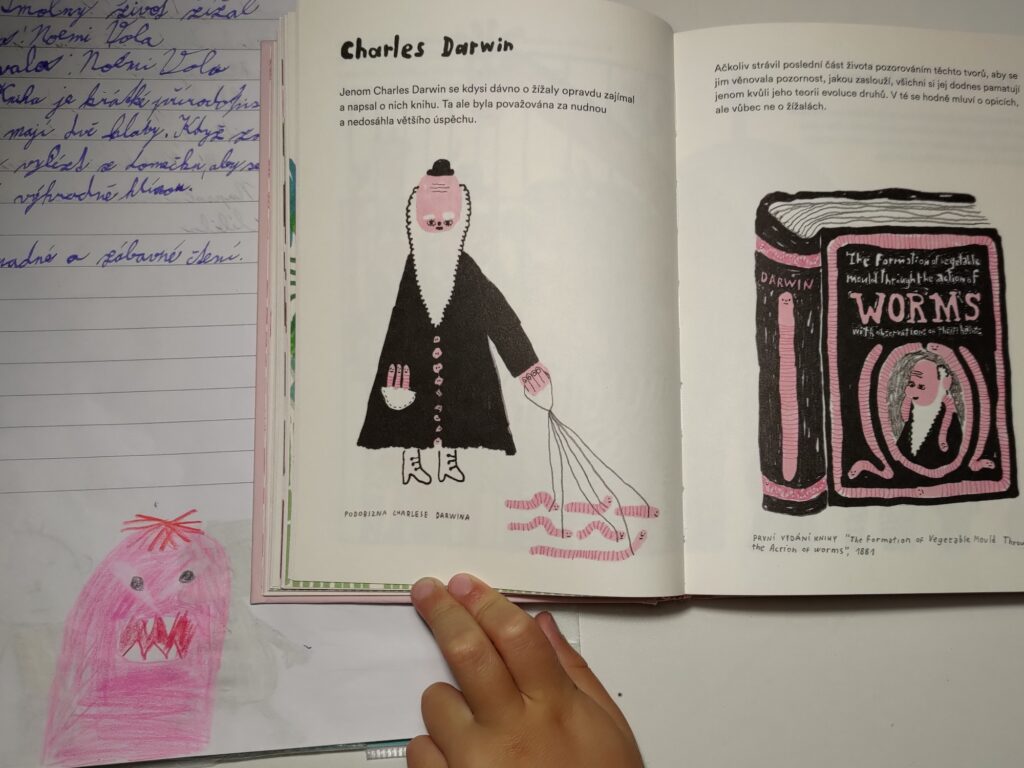 život žížal
: Noemi Vola
: Noemi Vola
Kniha je krátké
mají dvě hlavy. Když
vylézt z domečku, aby se
výhradně hlínou.
a zábavné čtení.
Charles Darwin
Jenom Charles Darwin se kdysi dávno o žížaly opravdu zajímal
a napsal o nich knihu. Ta ale byla považována za nudnou
a nedosáhla většího úspěchu.
PODOBIZNA CHARLESE DARWINA
Ačkoliv strávil poslední část života pozorováním těchto tvorů, aby se
jim věnovala pozornost, jakou zaslouží, všichni si jej dodnes pamatují
jenom kvůli jeho teorii evoluce druhů. V té se hodně mluví o opicích,
ale vůbec ne o žížalách.
DARWIN
The formation of vegetable
mould through the action of
WORMS
with observations on their habits
PRVNÍ VYDÁNÍ KNIHY "The Formation of Vegetable Mould Throu
the Action of Worms", 1881